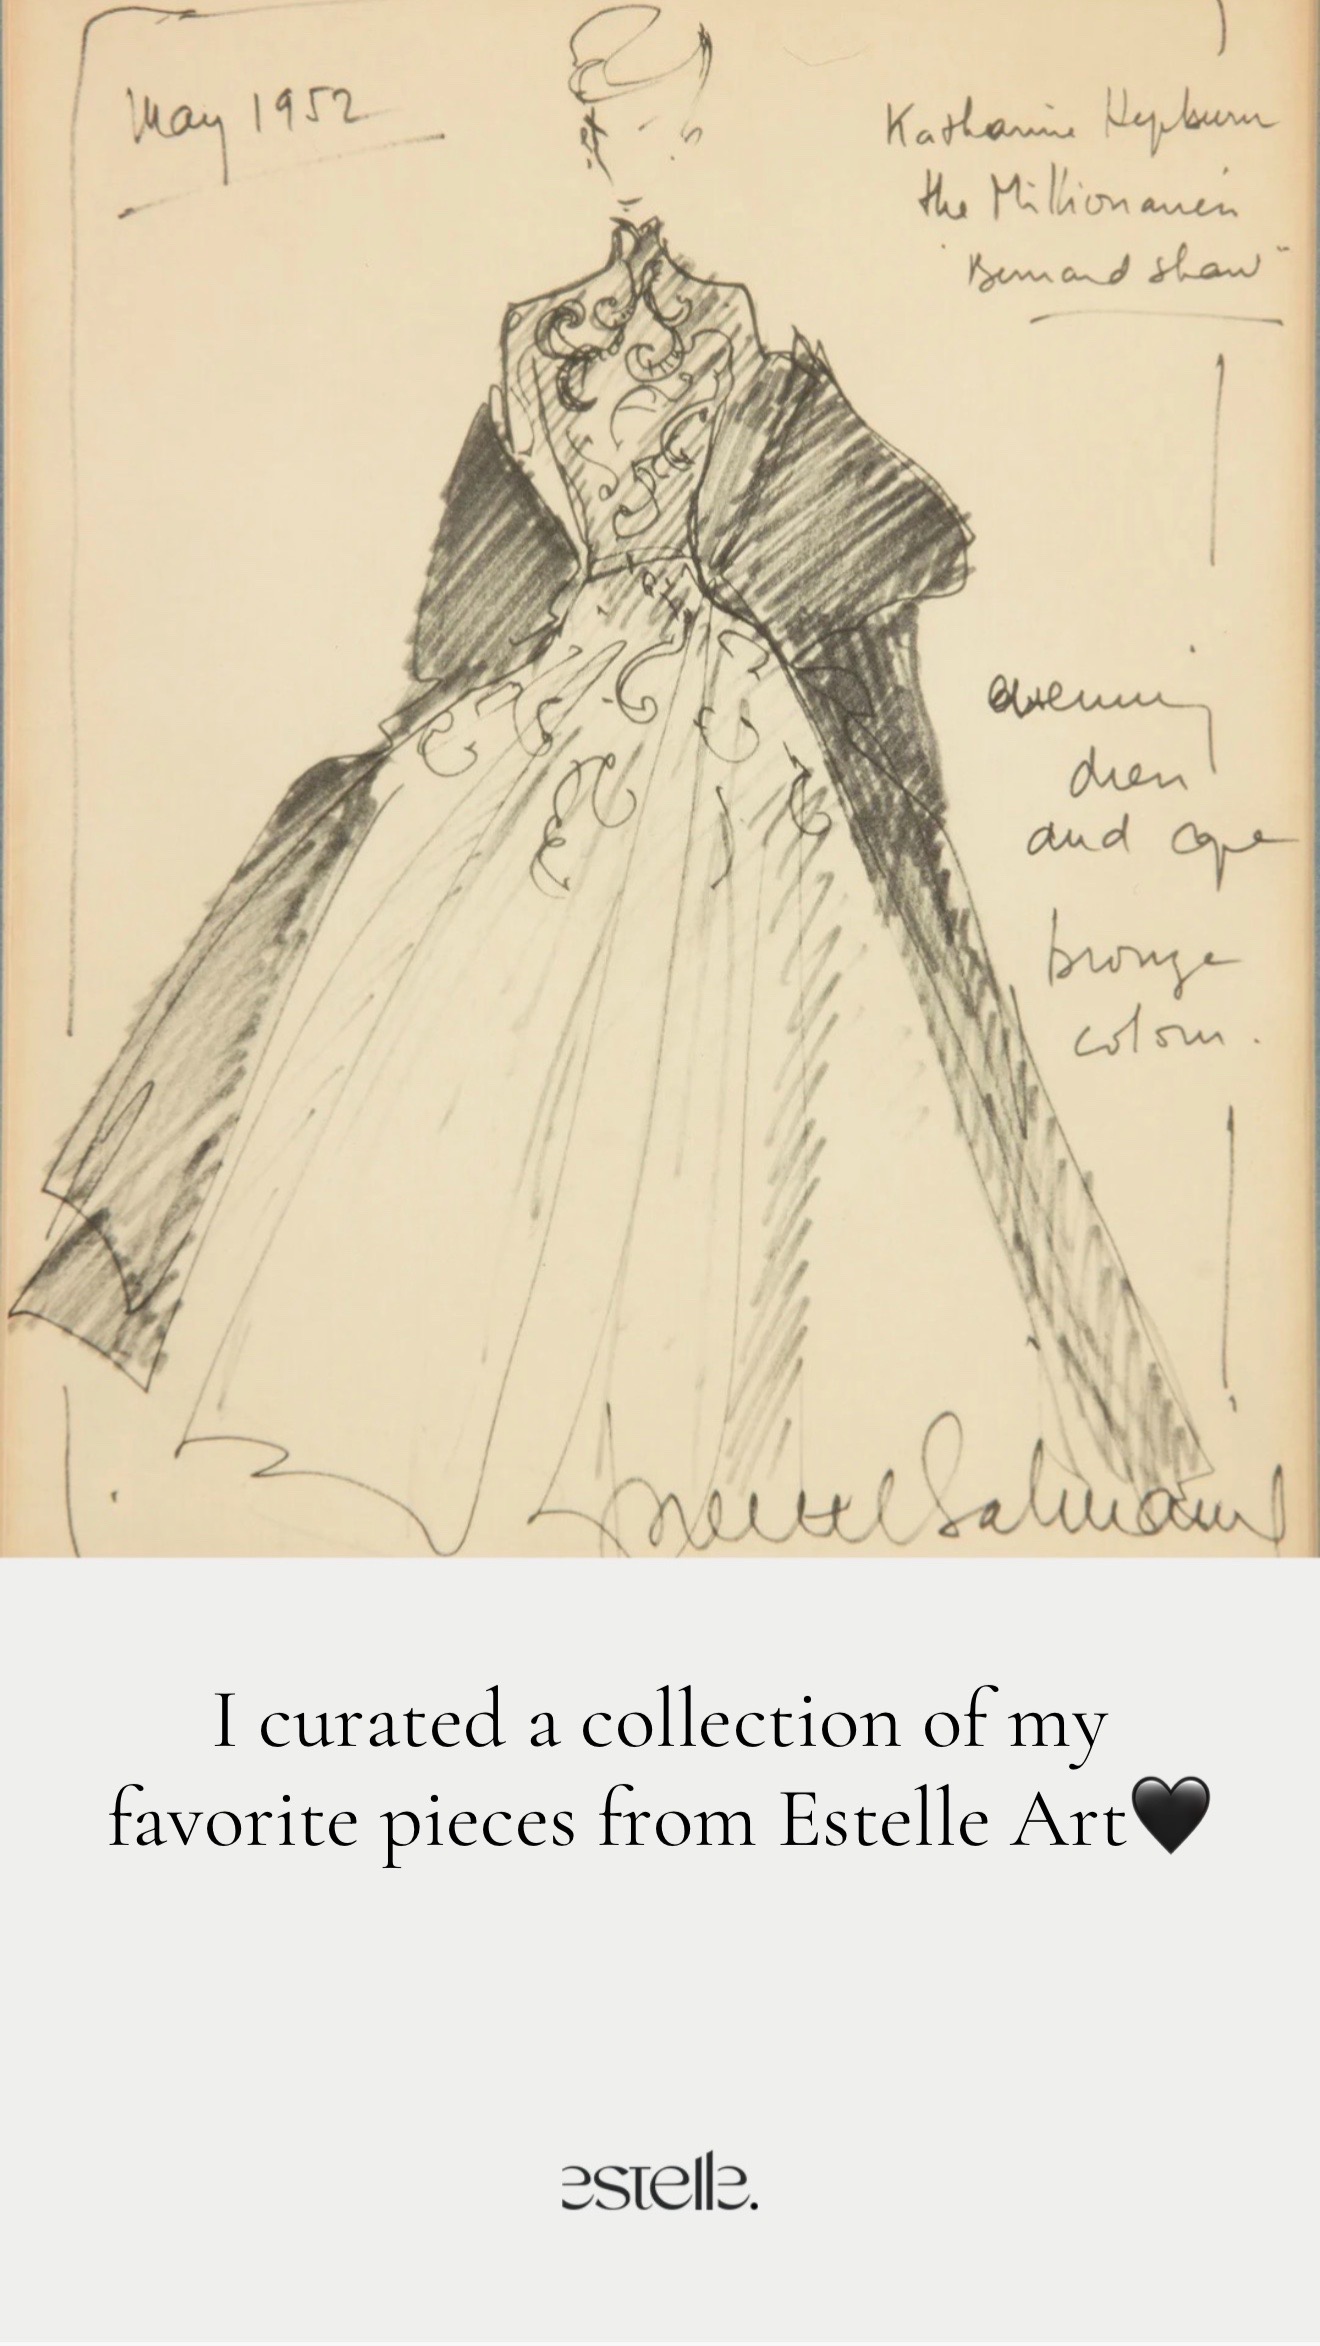 May 1952
Katharine Hepburn
the Millionairess
"Bernard Shaw"
evening
dress
and cape
bronze
colour.
Balmain
I curated a collection of my
favorite pieces from Estelle Art🖤
estelle.